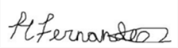 M Fernandez